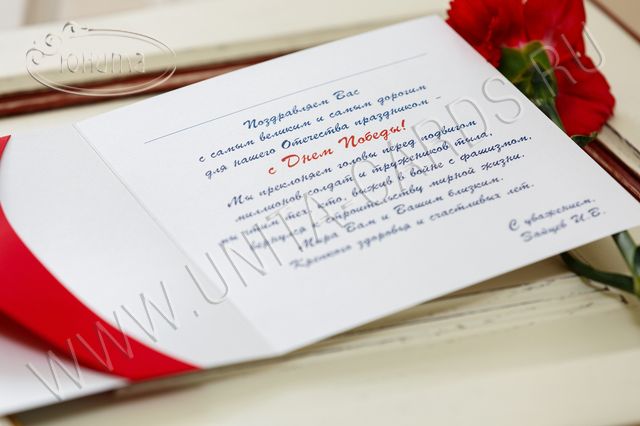 Юнита
Поздравляем Вас
с самым великим и самым дорогим
для нашего Отечества праздником -
с Днем Победы!
Мы преклоняем головы перед подвигом
миллионов солдат и тружеников тыла,
мы чтим тех, кто, выжив в войне с фашизмом,
вернулся к строительству мирной жизни.
Мира Вам и Вашим близким.
Крепкого здоровья и счастливых лет.
С уважением,
Зайцев И.В.
WWW.UNITA-CARDS.RU